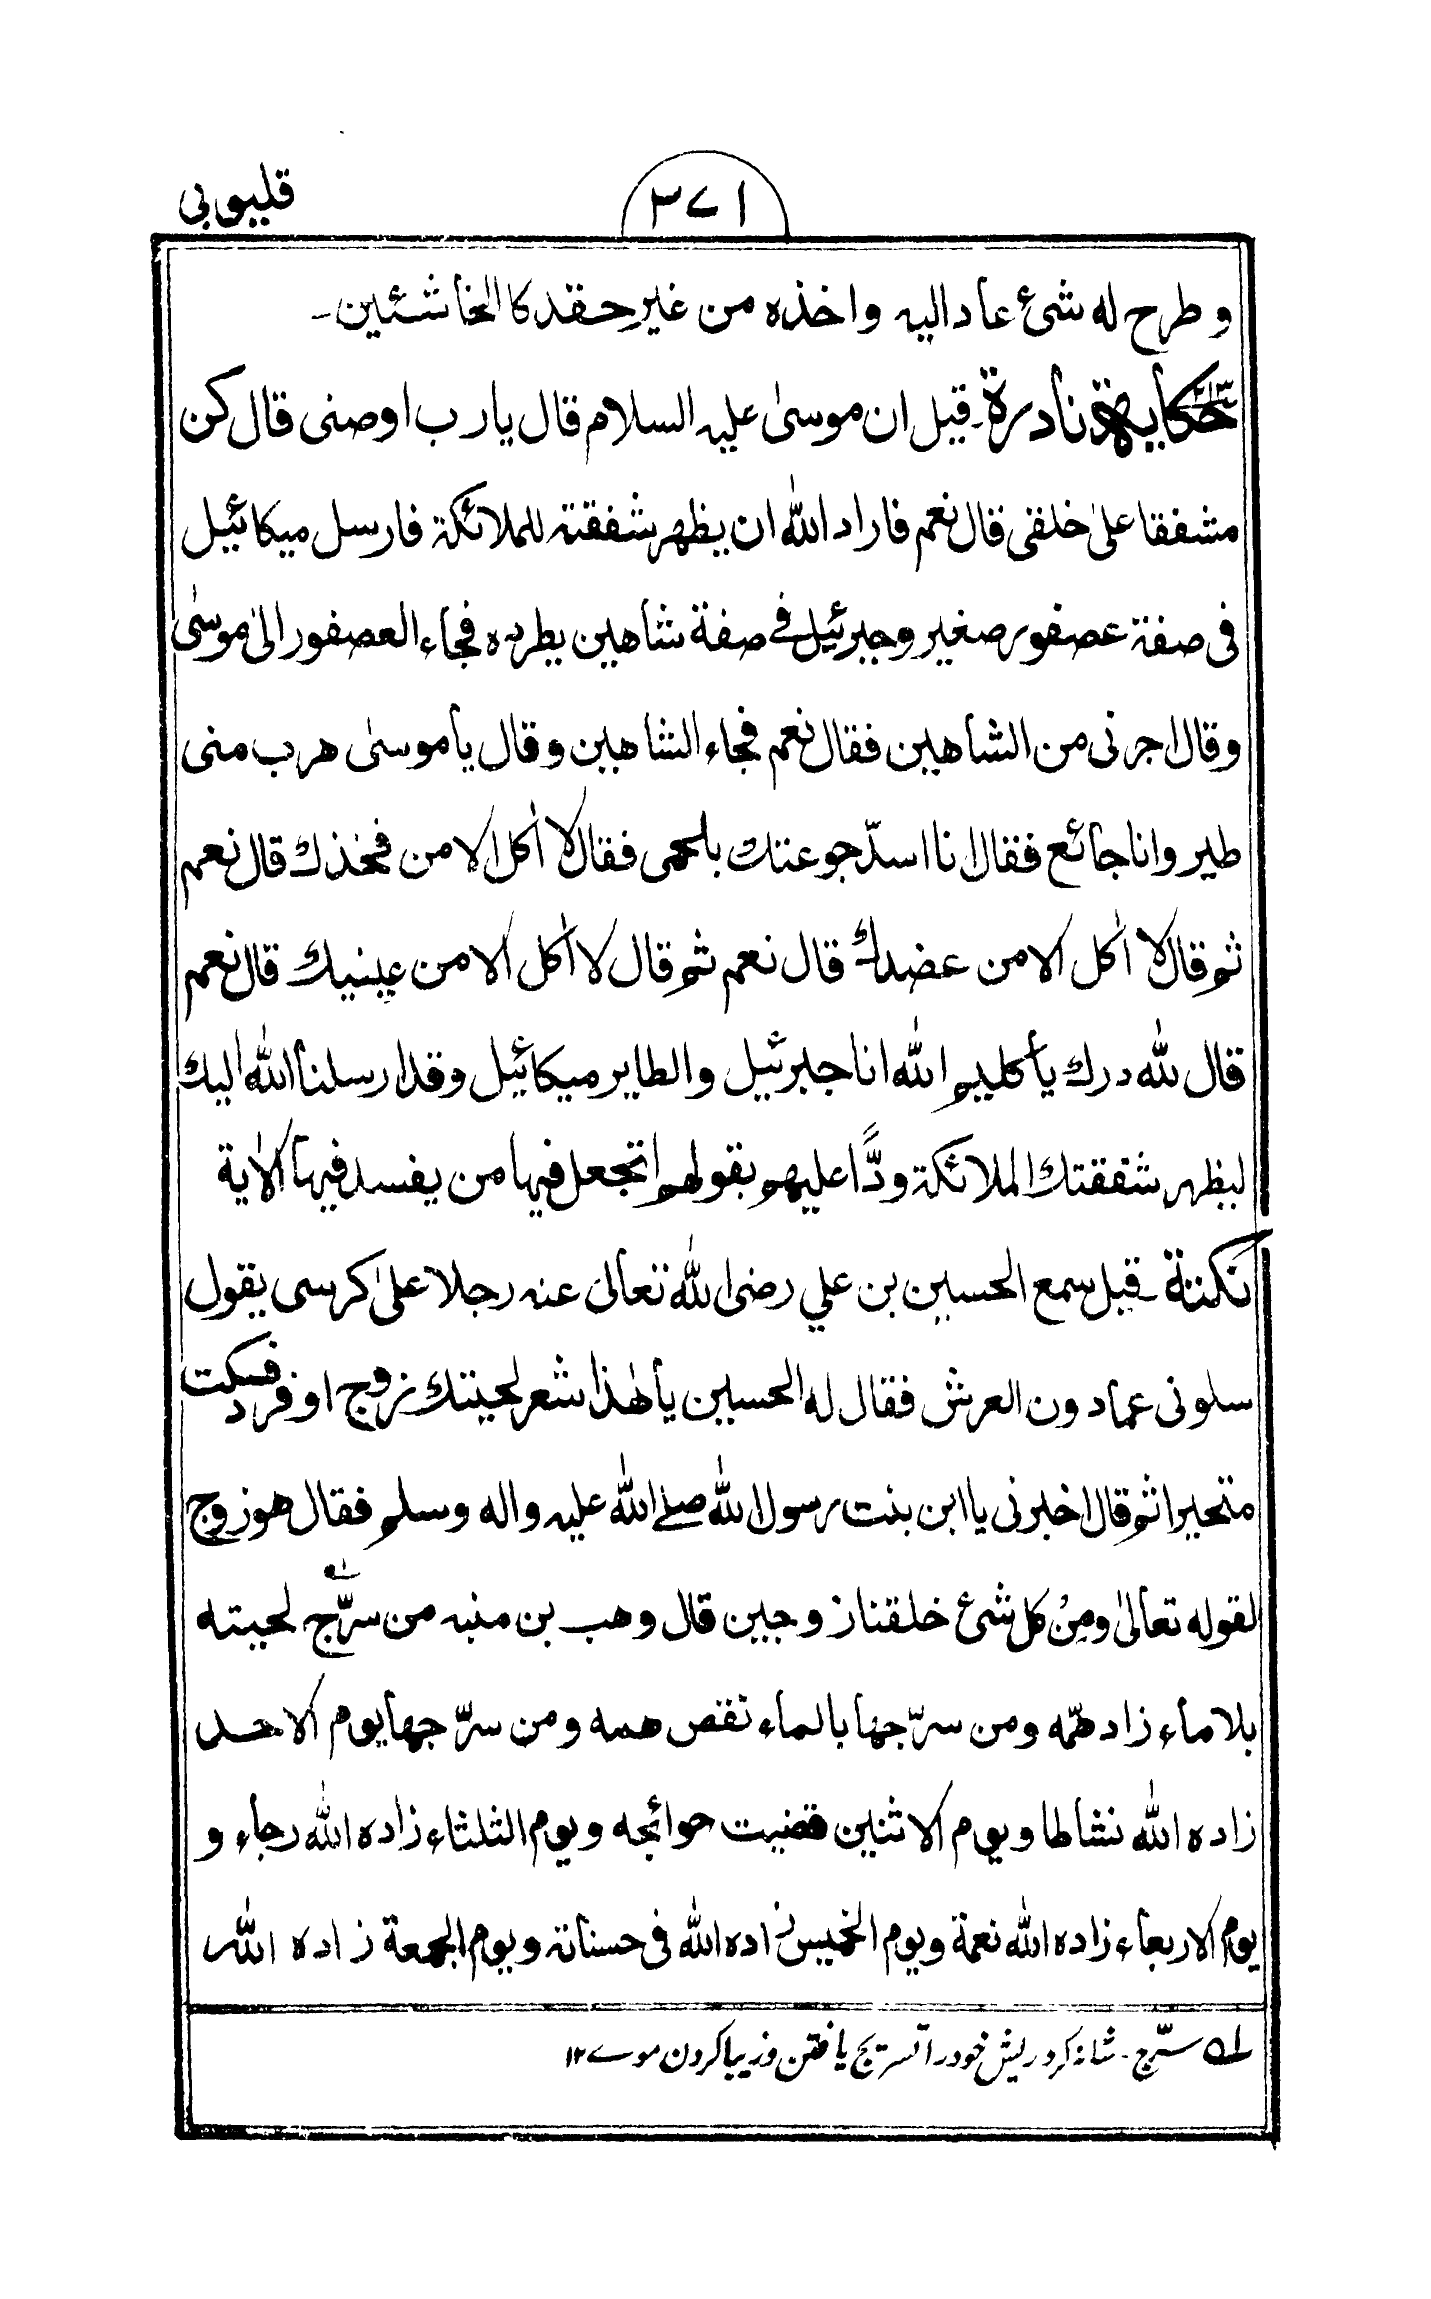 قليوبي
٣٧١
وطرح له شئ عاد اليه واخذه من غير حقد كالخاشئين۔
حكاية نادرة۔ قيل ان موسىٰ عليه السلام قال يارب اوصنى قال كن
مشفقا علىٰ خلقى قال نعم فاراد الله ان يظهر شفقته للملائكة فارسل ميكائيل
فى صفة عصفور صغير وجبرئيل فے صفة شاهين يطرده فجاء العصفور الىٰ موسىٰ
وقال اجرنى من الشاهين فقال نعم فجاء الشاهين وقال ياموسىٰ هرب منى
طير وانا جائع فقال انا اسدّ جوعتك بلحمى فقال لا اٰكل الا من فخذك قال نعم
ثم قال لا اٰكل الا من عضدك قال نعم ثم قال لا اٰكل الا من عينيك قال نعم
قال لله درك يا كليم الله انا جبرئيل والطاير ميكائيل وقد ارسلنا الله اليك
ليظهر شفقتك الملائكة ردًّا عليهم بقولهم اتجعل فيها من يفسد فيها الاٰية
نكتة۔ قيل سمع الحسين بن علي رضى الله تعالىٰ عنه رجلا علىٰ كرسى يقول
سلونى عما دون العرش فقال له الحسين يا هٰذا شعر لحيتك زوج او فرد فسكت
متحيرا ثم قال اخبرنى يا ابن بنت رسول الله صلے الله عليه واله وسلم فقال هو زوج
لقوله تعالىٰ ومِنْ كل شئ خلقنا زوجين قال وهب بن منبه من سرّج لحيته
بلا ماء زاد همّه ومن سرّجها بالماء نقص همه ومن سرّجها يوم الاحد
زاده الله نشاطا ويوم الاثنين قضيت حوائجه ويوم الثلثاء زاده الله رجاء و
يوم الاربعاء زاده الله نعمة ويوم الخميس زاده الله فى حسناته ويوم الجمعة زاده الله
لـه سرّج۔ شانہ کرد ریش خود را تسریج یافتن و زیبا کردن موے ۱۲